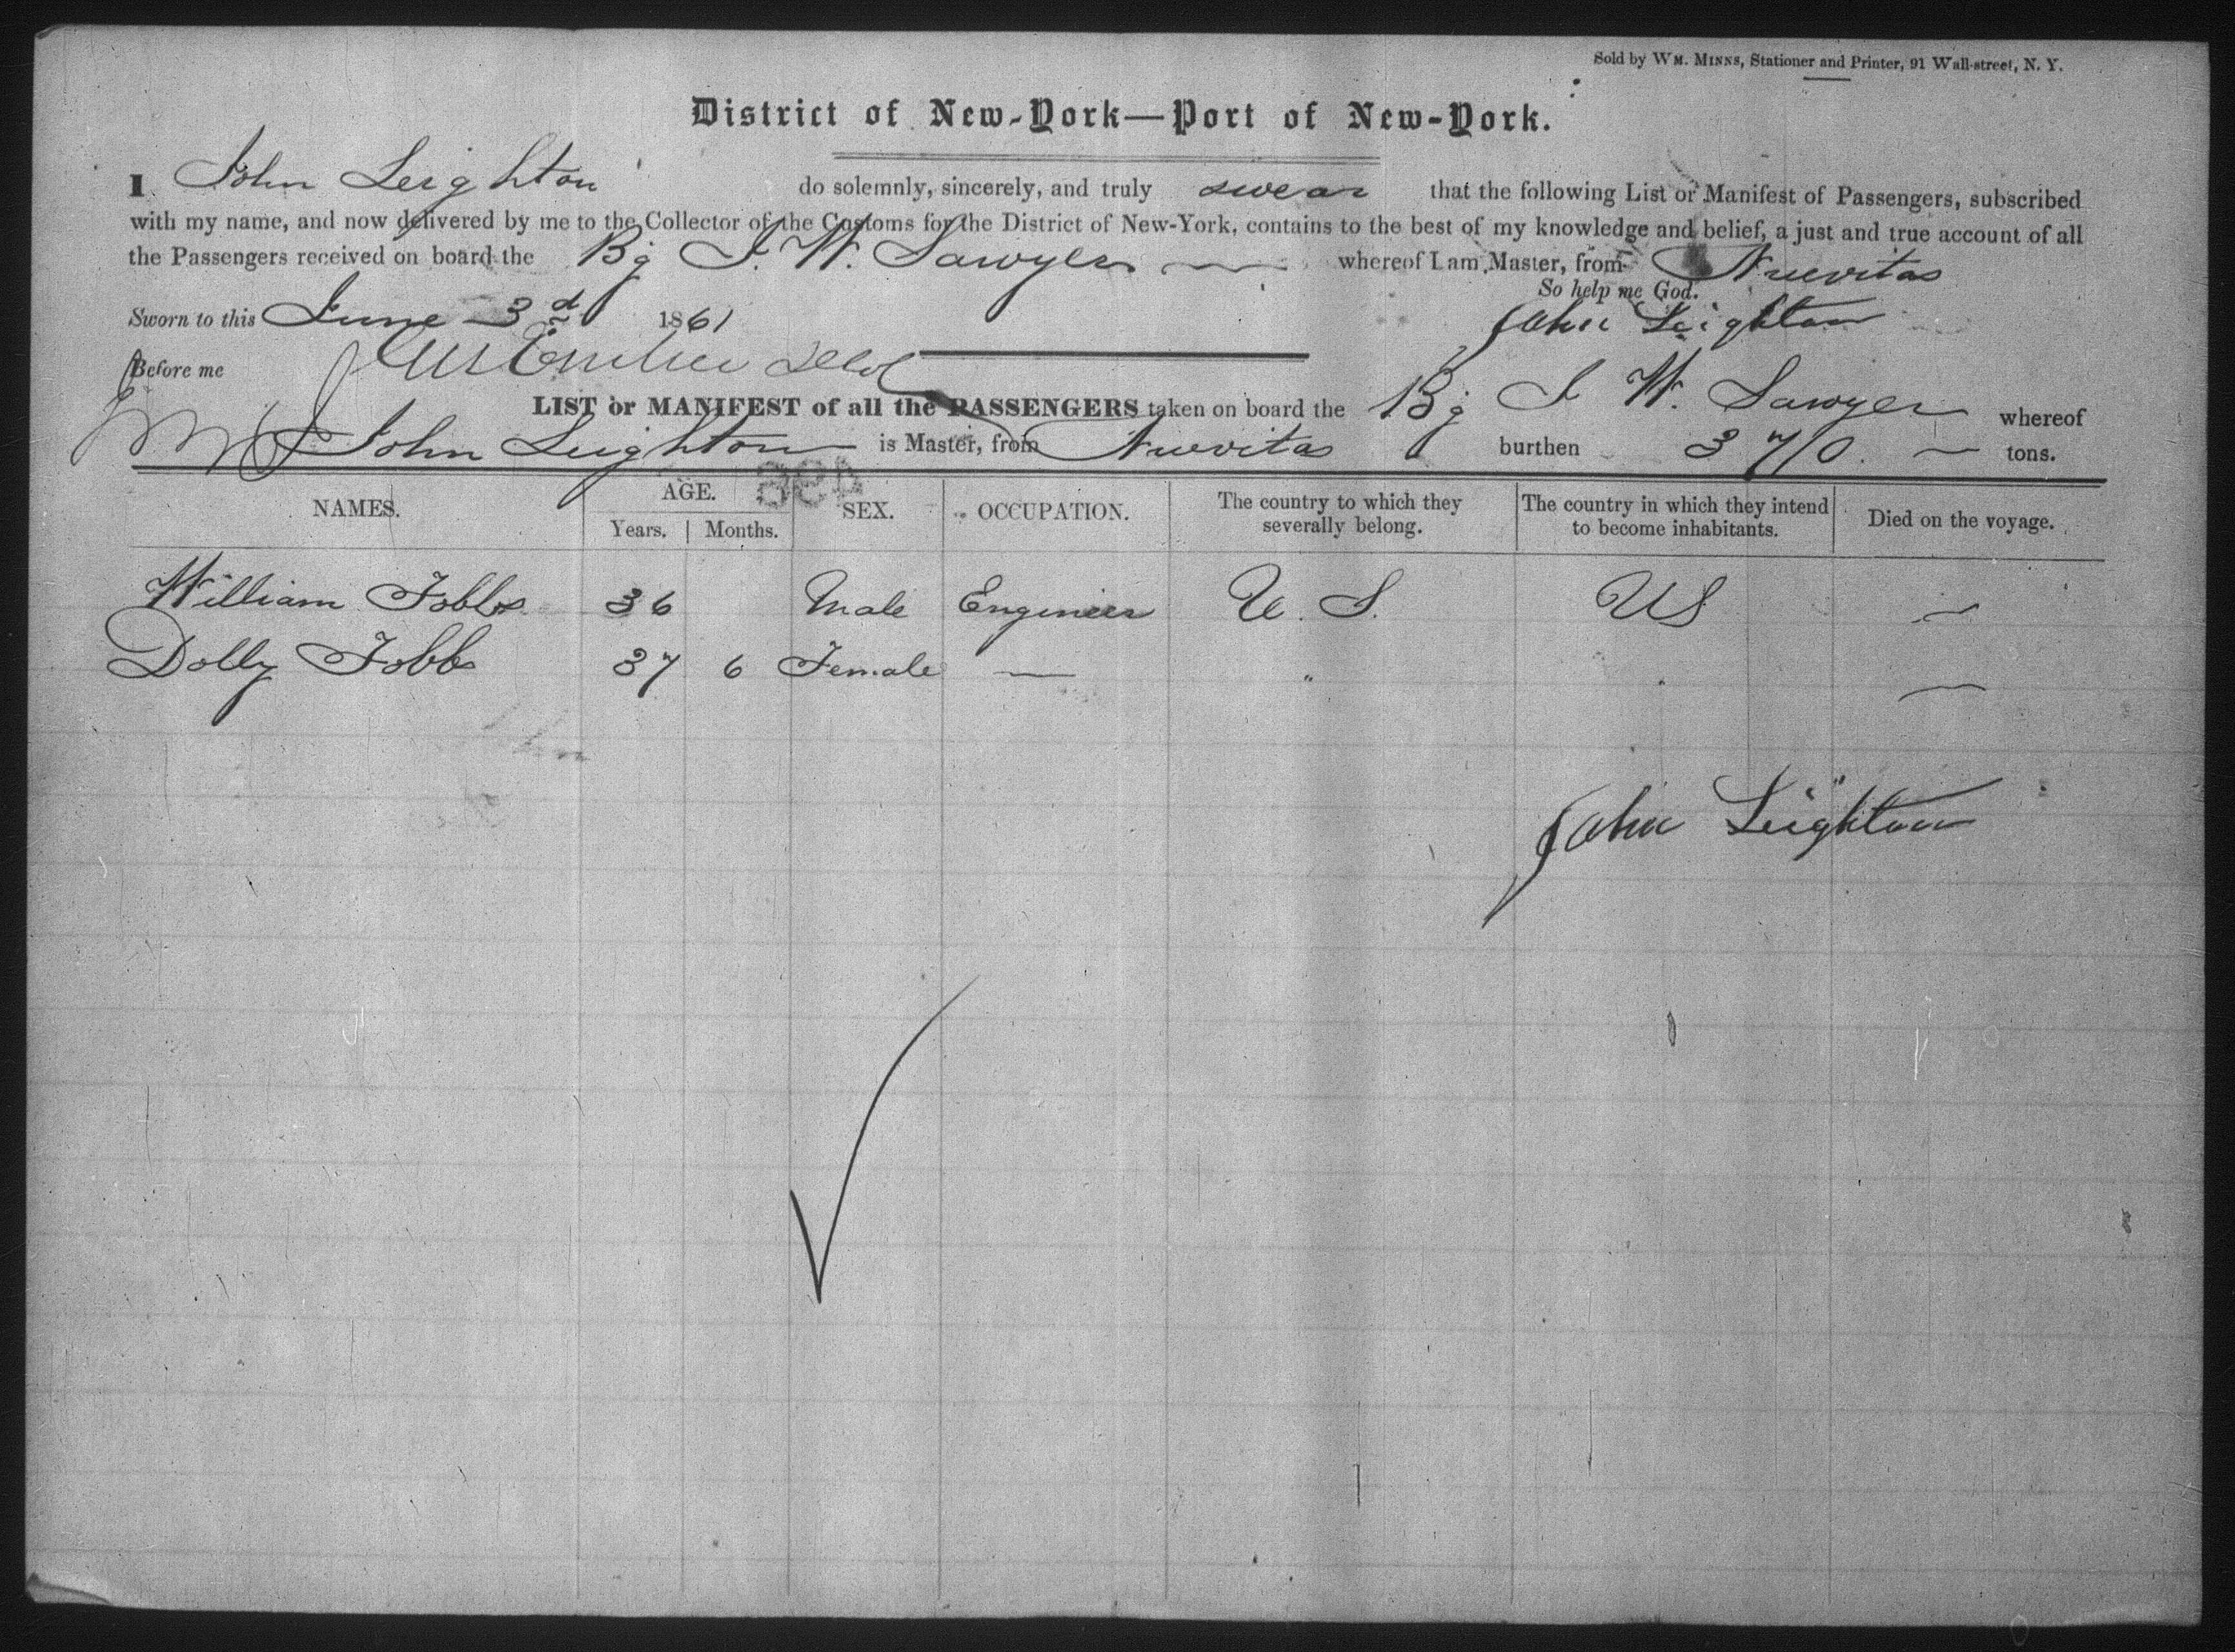 Sold by WM. MINNS, Stationer and Printer, 91 Wall-street, N. Y.
District of New-York—Port of New-York.
I John Leighton do solemnly, sincerely, and truly swear that the following List or Manifest of Passengers, subscribed
with my name, and now delivered by me to the Collector of the Customs for the District of New-York, contains to the best of my knowledge and belief, a just and true account of all
the Passengers received on board the Bg J. W. Sawyer whereof I am Master, from Nuevitas
So help me God.
Sworn to this June 3d 1861 John Leighton
Before me
LIST or MANIFEST of all the PASSENGERS taken on board the Bg J W. Sawyer whereof
John Leighton is Master, from Nuevitas burthen 370 tons.
NAMES. AGE. SEX. OCCUPATION. The country to which they severally belong. The country in which they intend to become inhabitants. Died on the voyage.
Years. Months.
William Fobbs 36 Male Engineer U. S. US —
Dolly Fobbs 37 6 Female — " " —
John Leighton